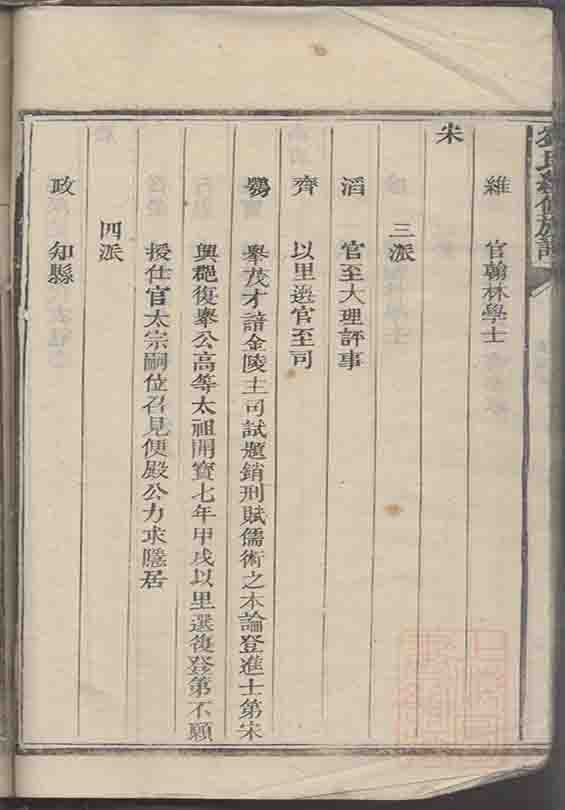 維　官翰林學士
宋
三派
滔　官至大理評事
齊　以里選官至司
鶚　舉茂才諳金陵主司試題銷刑賦儒術之本論登進士第宋
興郡復舉公高等太祖開寶七年甲戌以里選復登第不願
授仕官太宗嗣位召見便殿公力求隱居
四派
政　知縣